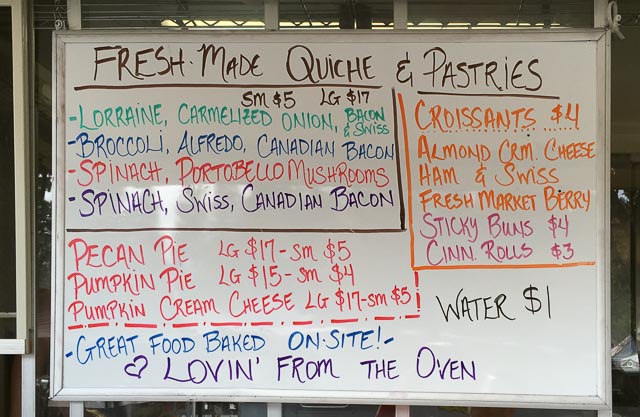 FRESH-MADE QUICHE & PASTRIES
SM $5 LG $17
-LORRAINE, CARMELIZED ONION, BACON & SWISS
-BROCCOLI, ALFREDO, CANADIAN BACON
-SPINACH, PORTOBELLO MUSHROOMS
-SPINACH, SWISS, CANADIAN BACON
CROISSANTS $4
ALMOND CRM. CHEESE
HAM & SWISS
FRESH MARKET BERRY
STICKY BUNS $4
CINN. ROLLS $3
PECAN PIE LG $17-SM $5
PUMPKIN PIE LG $15-SM $4
PUMPKIN CREAM CHEESE LG $17-SM $5
WATER $1
-GREAT FOOD BAKED ON-SITE!-
♡ LOVIN' FROM THE OVEN